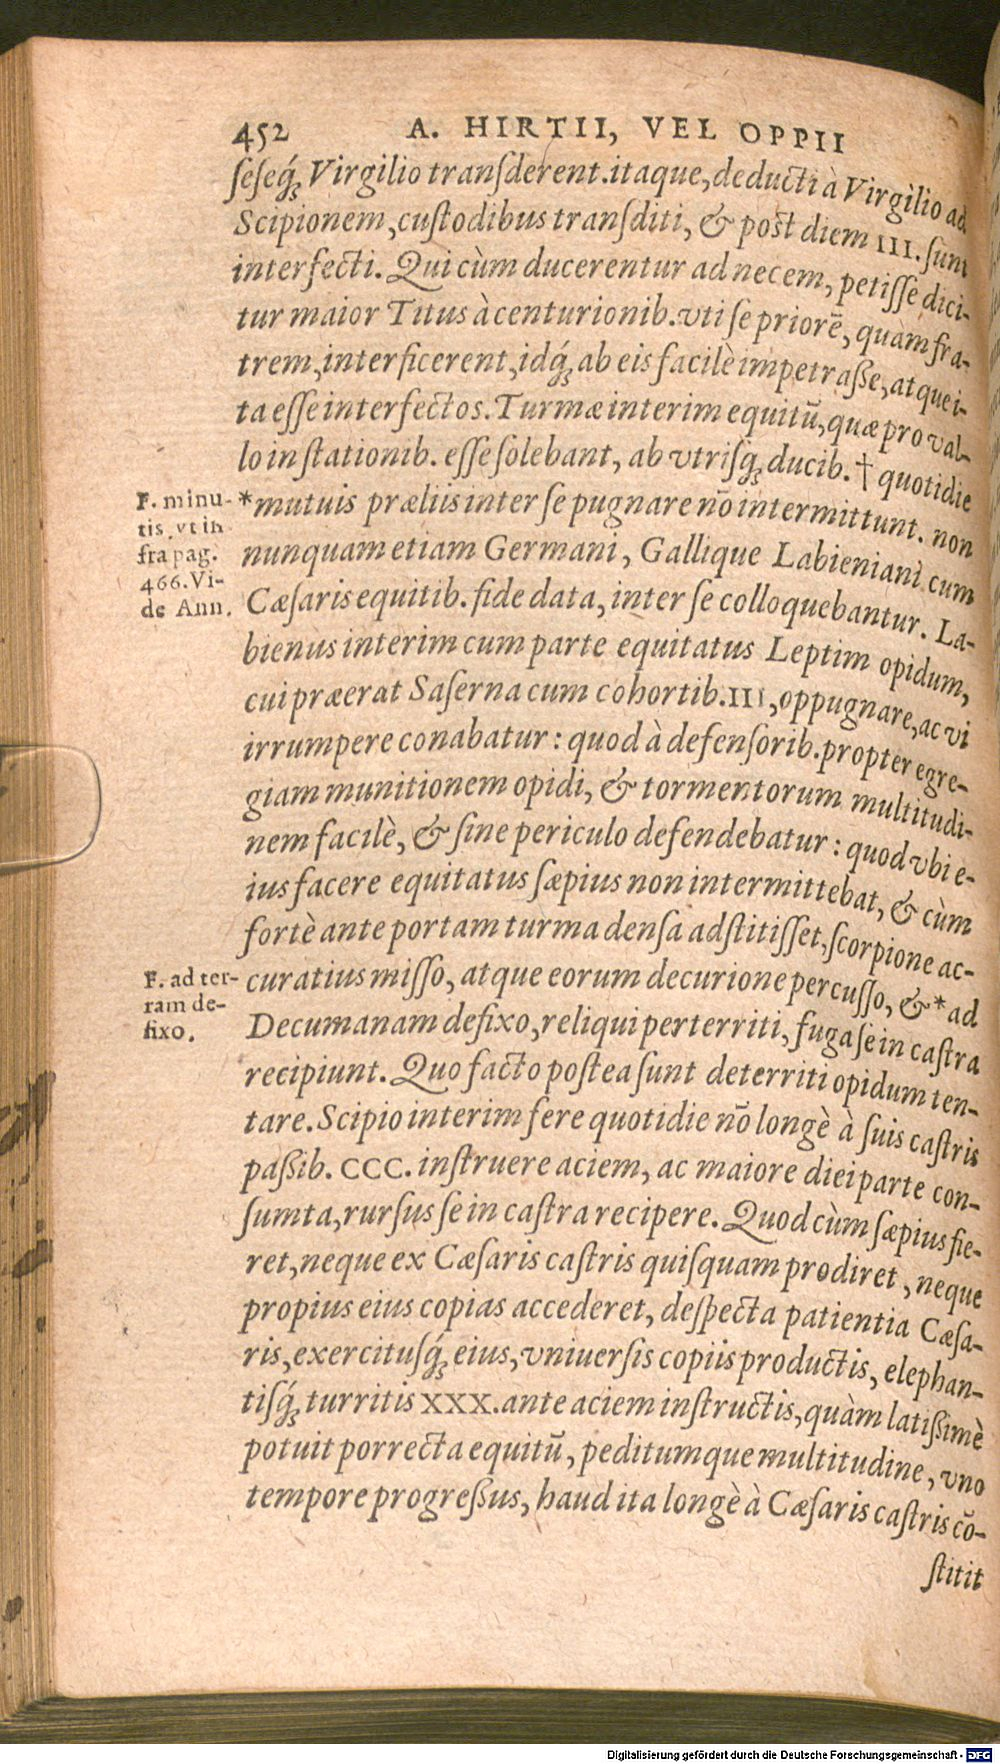 452 A. HIRTII, VEL OPPII
ſeſeq́; Virgilio transderent. itaque, deducti à Virgilio ad
Scipionem, cuſtodibus transditi, & poſt diem III. ſunt
interfecti. Qui cùm ducerentur ad necem, petiſſe dici-
tur maior Titus à centurionib. vti ſe priorē, quàm fra-
trem, interficerent, idq́; ab eis facilè impetraße, atque i-
ta eſſe interfectos. Turmæ interim equitū, quæ pro val-
lo in ſtationib. eſſe ſolebant, ab vtriſq; ducib. † quotidie
*mutuis præliis inter ſe pugnare nō intermittunt. non
nunquam etiam Germani, Gallique Labieniani cum
Cæſaris equitib. fide data, inter ſe colloquebantur. La-
bienus interim cum parte equitatus Leptim opidum,
cui præerat Saſerna cum cohortib. III, oppugnare, ac vi
irrumpere conabatur: quod à defenſorib. propter egre-
giam munitionem opidi, & tormentorum multitudi-
nem facilè, & ſine periculo defendebatur: quod vbi e-
ius facere equitatus ſæpius non intermittebat, & cùm
fortè ante portam turma denſa adſtitiſſet, ſcorpione ac-
curatius miſſo, atque eorum decurione percuſſo, &* ad
Decumanam defixo, reliqui perterriti, fuga ſe in caſtra
recipiunt. Quo facto poſtea ſunt deterriti opidum ten-
tare. Scipio interim fere quotidie nō longè à ſuis caſtris
paßib. CCC. inſtruere aciem, ac maiore diei parte con-
ſumta, rurſus ſe in caſtra recipere. Quod cùm ſæpius fie-
ret, neque ex Cæſaris caſtris quiſquam prodiret, neque
propius eius copias accederet, deſpecta patientia Cæſa-
ris, exercituſq́; eius, vniuerſis copiis productis, elephan-
tiſq́; turritis XXX. ante aciem inſtructis, quàm latißimè
potuit porrecta equitū, peditumque multitudine, vno
tempore progreßus, haud ita longè à Cæſaris caſtris cō-
ſtitit
F. minu-
tis, vt in
fra pag.
466. Vi-
de Ann.
F. ad ter-
ram de-
fixo.
Digitalisierung gefördert durch die Deutsche Forschungsgemeinschaft - DFG